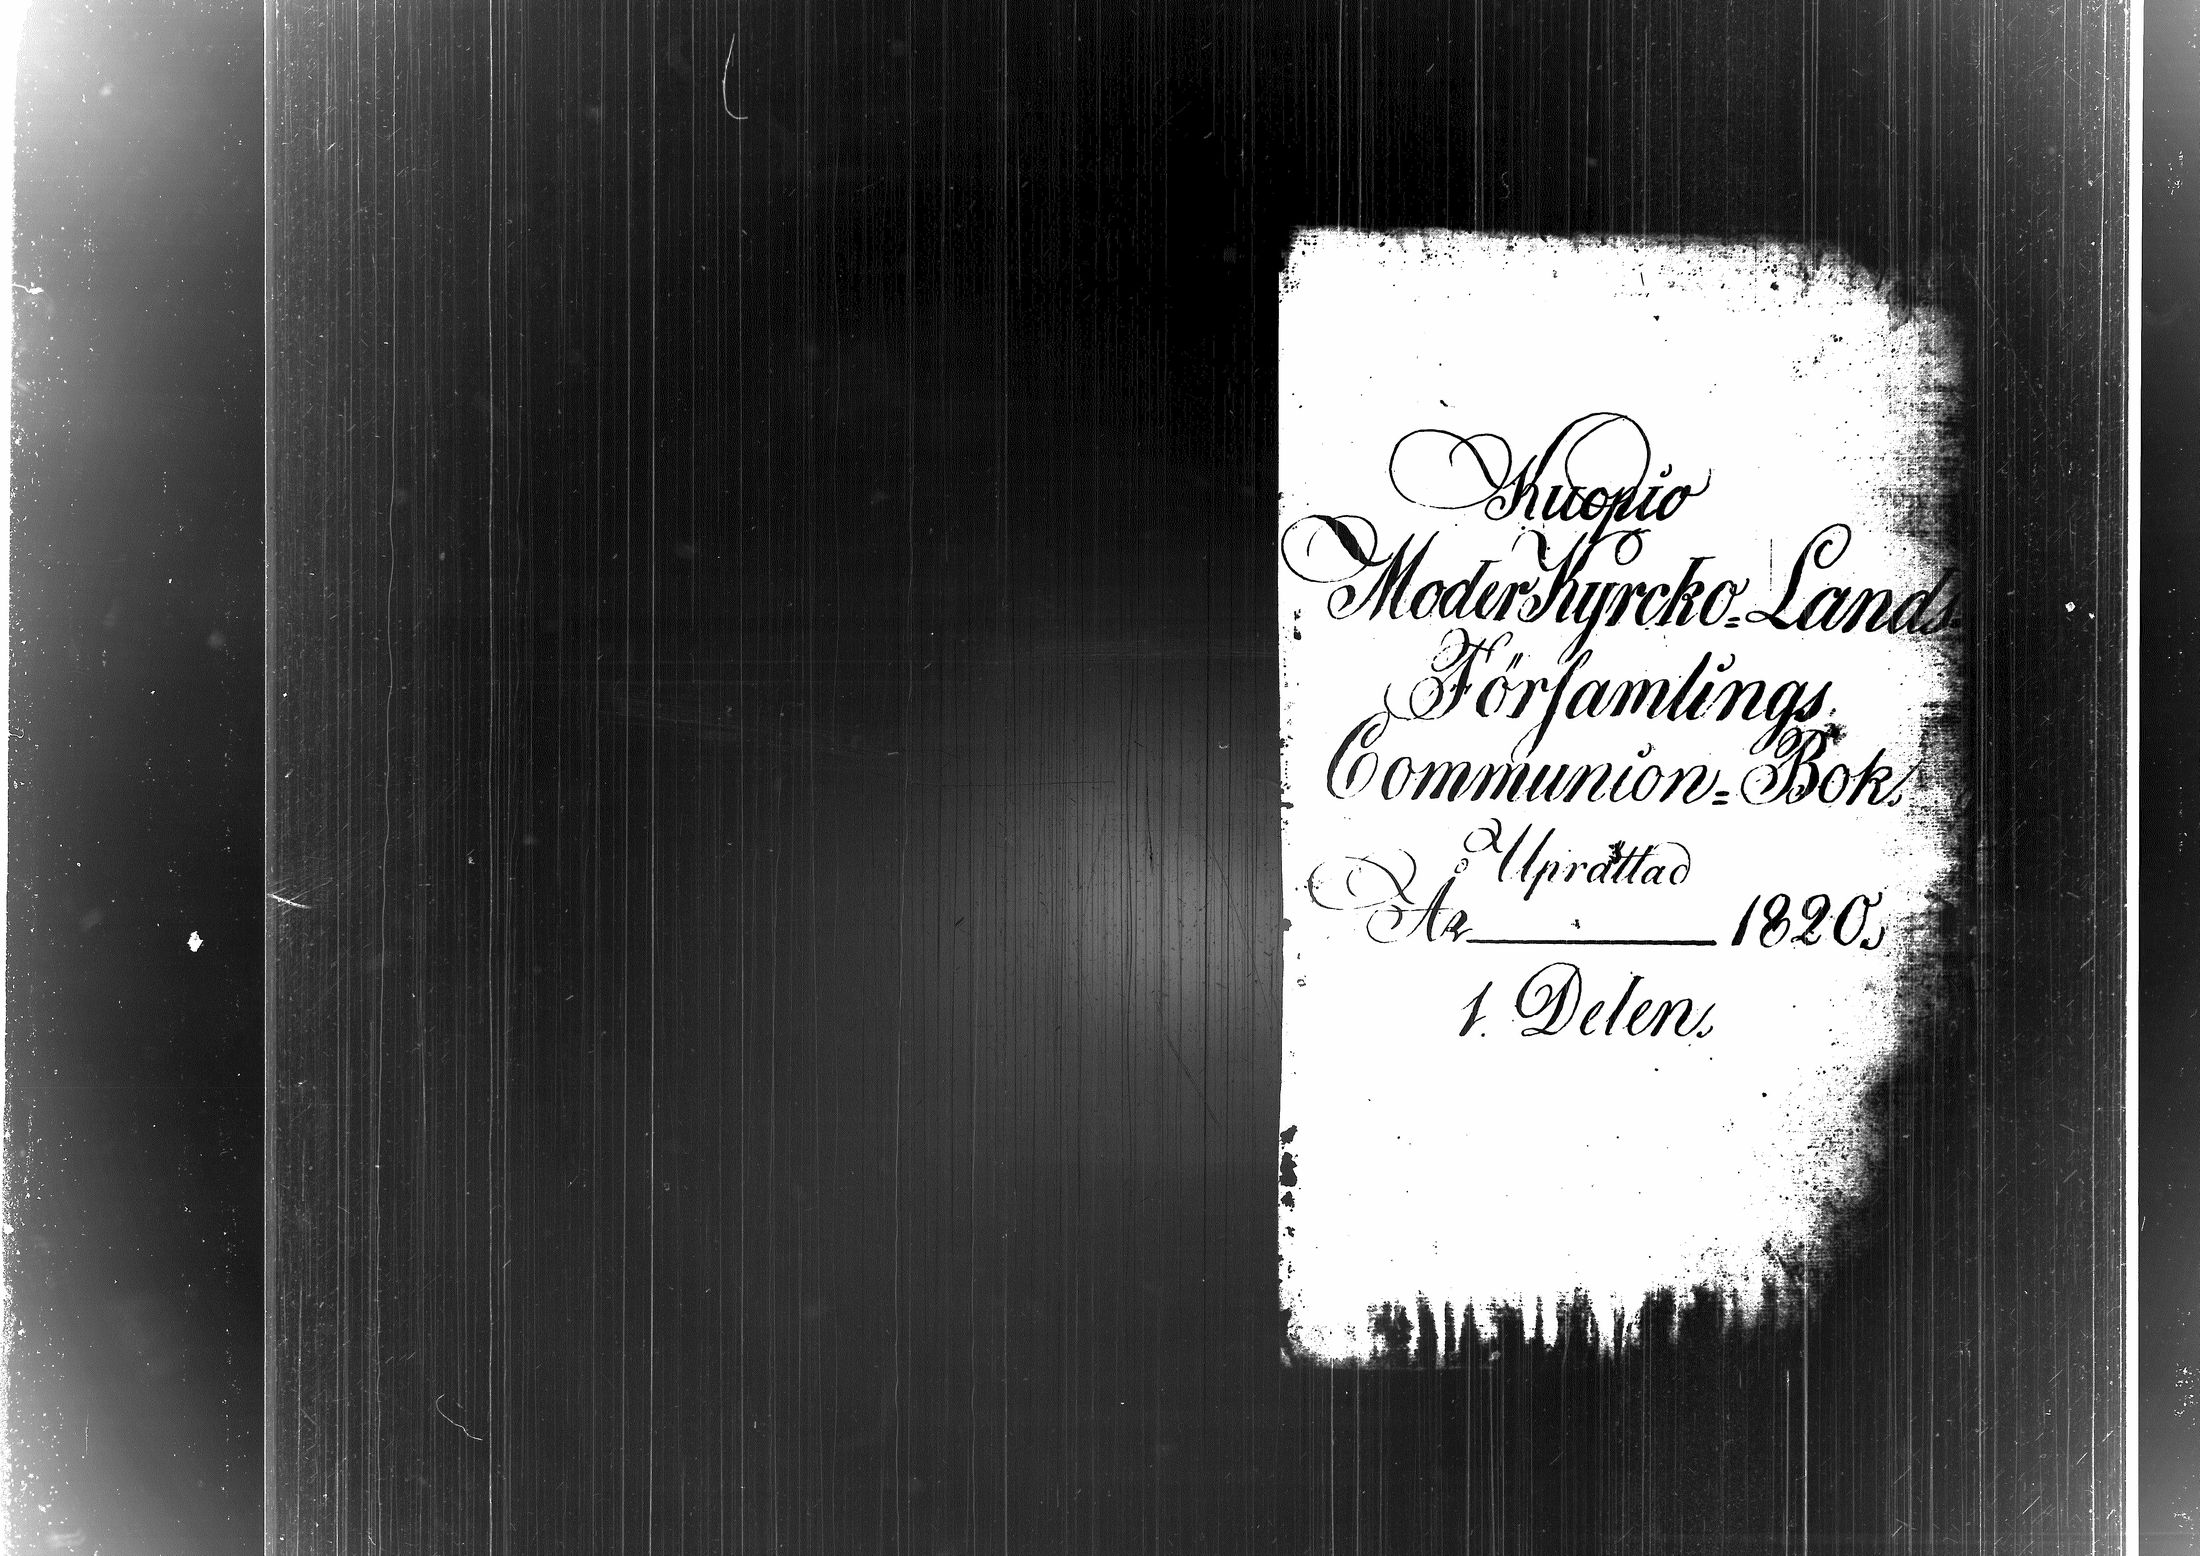 Kuopio
ModerKyrcko=Lands
Församlings
Communion=Bok,
Uprättad
År 1820,
1. Delen,